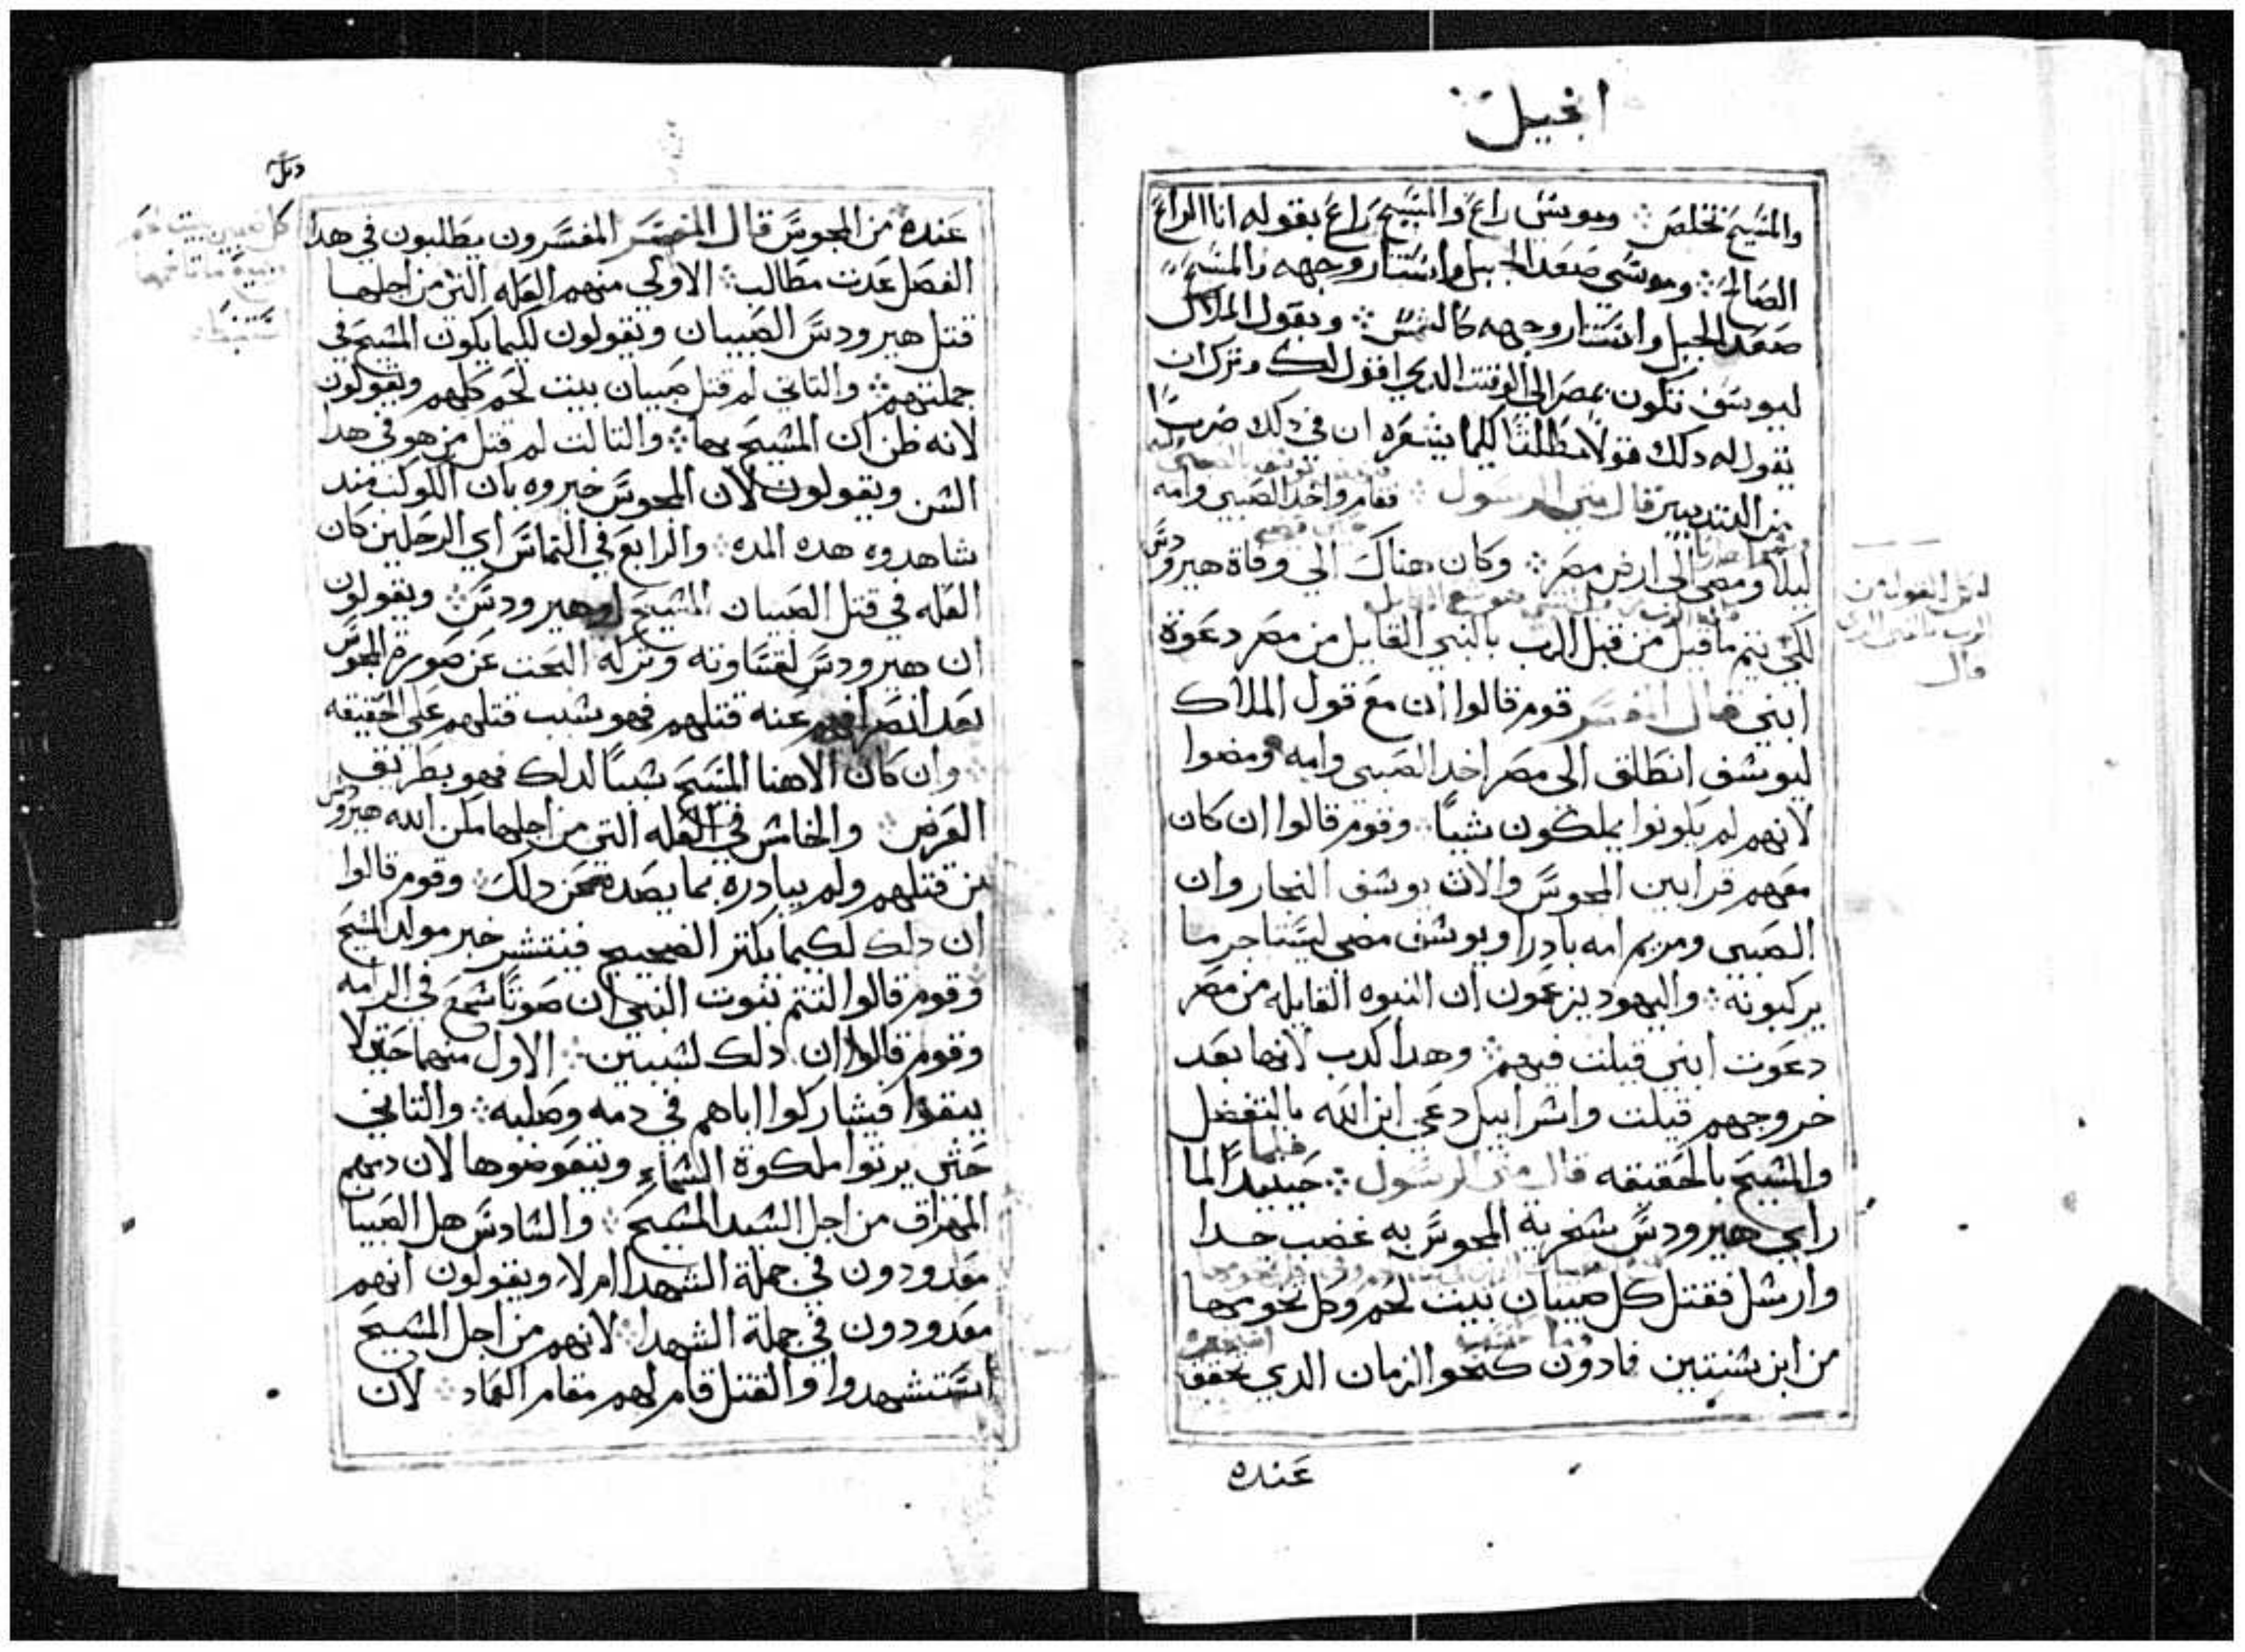 انجيل
والمسيح تخلص ⁘ وموسى راع والمسيح راع بقوله انا الراع
الصالح ⁘ وموسى صعد الجبل واستنار وجهه والمسيح
صعد الجبل واستنار وجهه كالشمس ⁘ ويقول الملاك
ليوسف تكون بمصر الى الوقت الدي اقول لك وترك ان
يقول له دلك قولا مطلقا كيما يشعره ان في دلك ضربا
من التدبير قال متي الرسول ⁘ فقام واخد الصبي وامه
ليلا ومضى الى ارض مصر ⁘ وكان هناك الي وفاة هيرودس
لكي يتم ما قيل من قبل الرب بالنبي القايل من مصر دعوة
ابني قال المفسر قوم قالوا ان مع قول الملاك
ليوسف انطلق الى مصر اخد الصبي وامه ومضوا
لانهم لم يكونوا يملكون شيا ⁘ وقوم قالوا ان كان
معهم قرابين المجوس والات يوسف النجار وان
الصبي ومريم امه بادرا ويوسف مضي ليستاجر ما
يركبونه ⁘ واليهود يزعمون ان النبوه القايله من مصر
دعوت ابني قيلت فيهم ⁘ وهدا كدب لانها بعد
خروجهم قيلت واسراييل دعي ابن الله بالتفضل
والمسيح بالحقيقه قال متى الرسول ⁘ حينيد لما
فلما
راي هيرودس سخرية المجوس به غضب جدا
وارسل فقتل كل صبيان بيت لحم وكل تخومها
من ابن سنتين فادون كنحو الزمان الدي تحقق
عنده
لكي
الرب
قال
عنده من المجوس قال المفسر المفسرون يطلبون في هدا
الفصل عدت مطالب ⁘ الاولي منهم العله التي من اجلها
قتل هيرودس الصبيان ويقولون لكيما يكون المسيح في
جملتهم ⁘ والتاني لم قتل صبيان بيت لحم كلهم ويقولون
لانه ظن ان المسيح بها ⁘ والتالت لم قتل من هو في هدا
السن ويقولون لان المجوس خبروه بان الكوكب مند
شاهدوه هده المده ⁘ والرابع في التماس اي الرجلين كان
العله في قتل الصبيان المسيح او هيرودس ⁘ ويقولون
ان هيرودس لقساوته وتركه البحت عن صورة المجوس
بعد انصرافهم عنه قتلهم فهو سبب قتلهم على الحقيقه
⁘ وان كان الاهنا المسيح سببا لدلك فهو بطريق
العرض ⁘ والخامس في العله التي من اجلها مكن الله هيرودس
من قتلهم ولم يبادره بما يصده عن دلك ⁘ وقوم قالوا
ان دلك لكيما يكتر الضجيج فينتشر خبر مولد المسيح
وقوم قالوا لتتم نبوت النبي ان صوتا سمع في الرامه
وقوم قالوا ان دلك لسببين ⁘ الاول منهما حتى لا
يبقوا فيشاركوا اباهم في دمه وصلبه ⁘ والتاني
حتى يرتوا ملكوة السماء ويتعوضوها لان دمهم
المهراق من اجل السيد المسيح ⁘ والسادس هل الصبيان
معدودون في جملة الشهدا ام لا ويقولون انهم
معدودون في جملة الشهدا ⁘ لانهم من اجل المسيح
استشهدوا والقتل قام لهم مقام العماد ⁘ لان